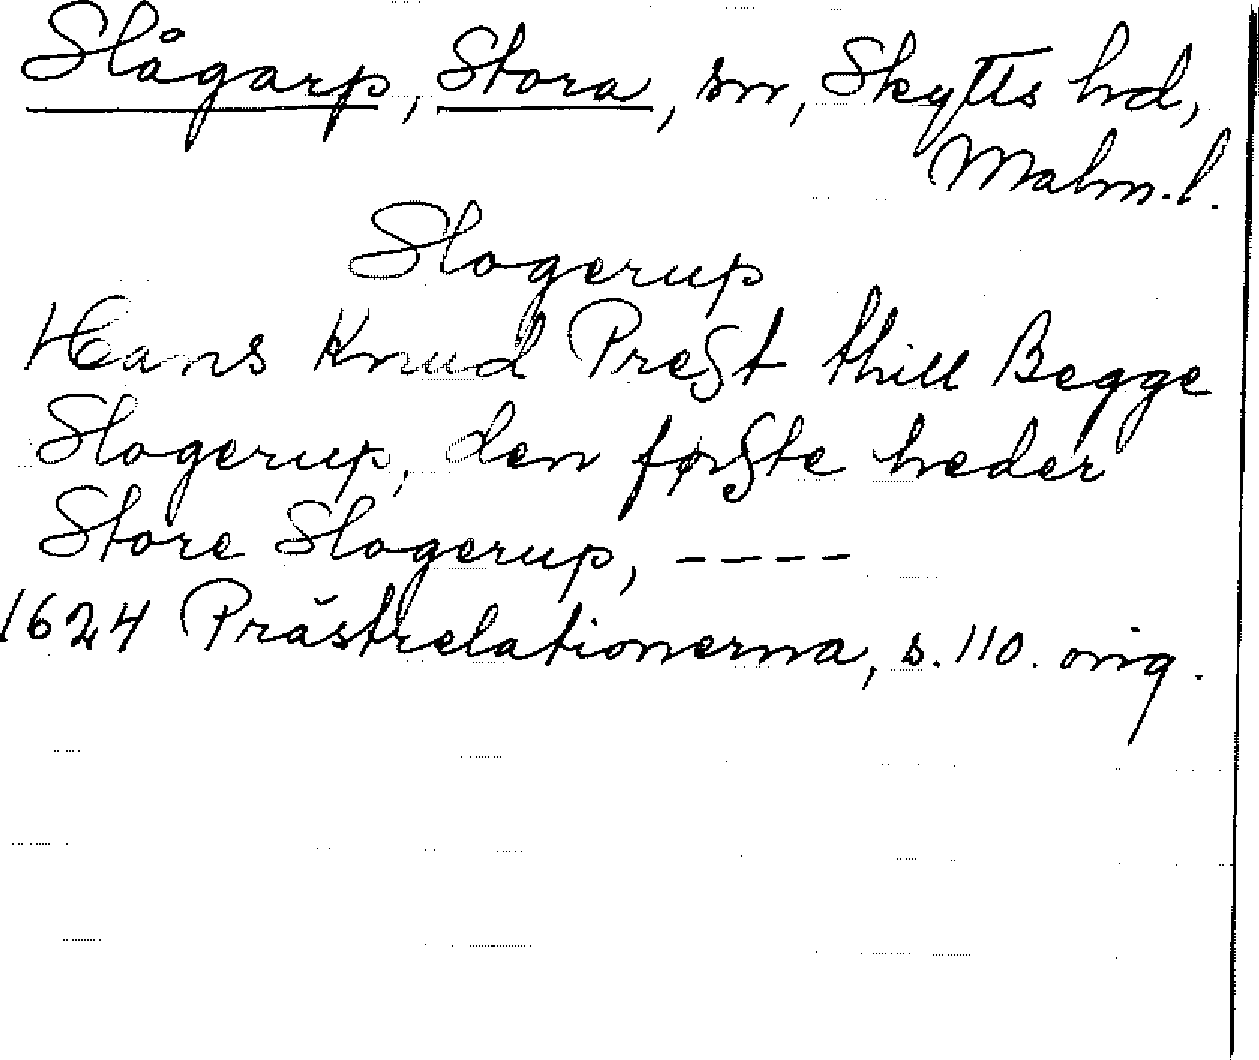 Slågarp, Stora, sn, Skytts hd,
Malm.l.
Slogerup
Hans Knud Prest thill Begge
Slogerup, den første heder
Store Slogerup, ----
1624 Prästrelationerna, s. 110. orig.